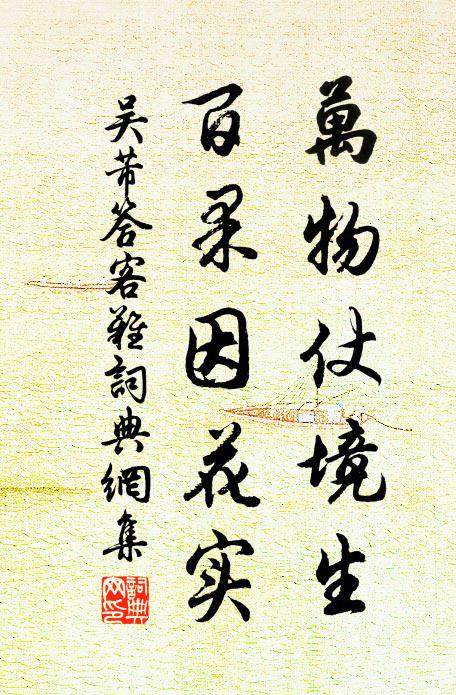 萬物仗境生
百果因花实
吴芾答客難詞典網集
詞典
网印